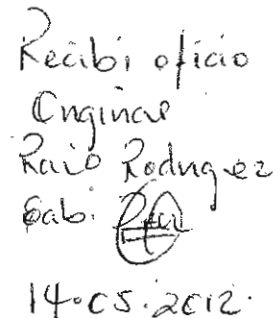 Recibi oficio
Original
Raio Rodriguez
Gabi.
14.05.2012.